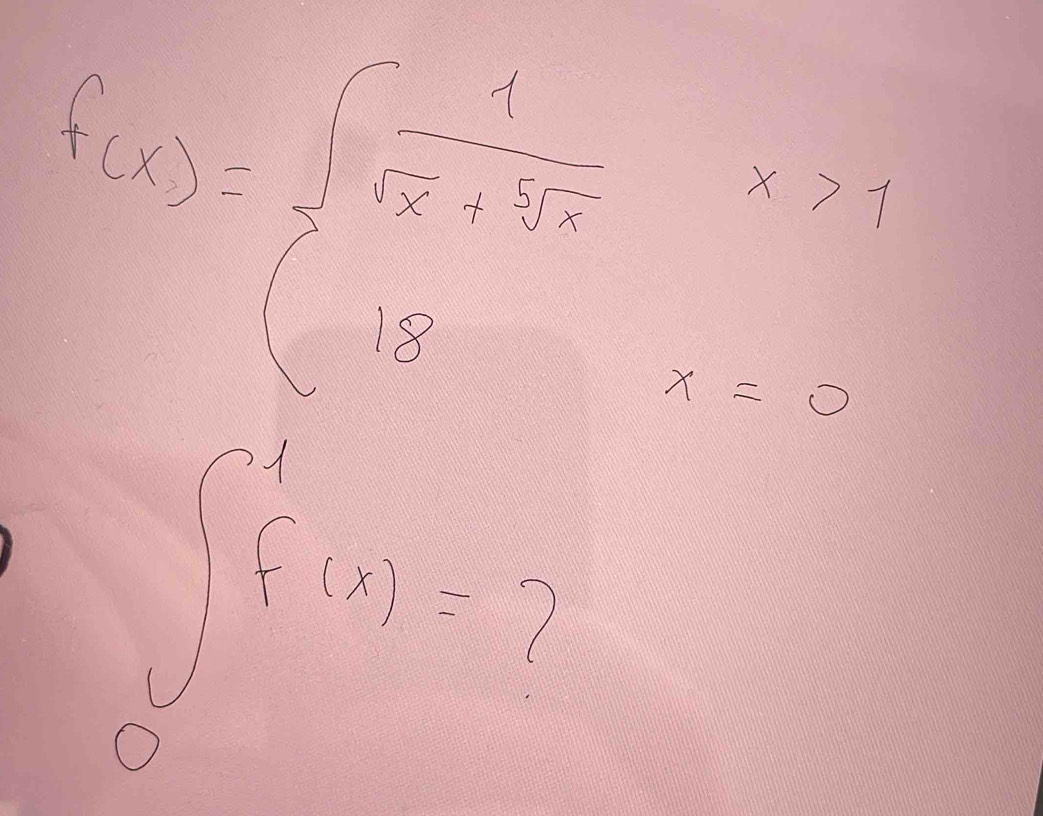 f(x) = { 1 / (√x + ⁵√x)    x > 1
18    x = 0
∫₀¹ f(x) = ?